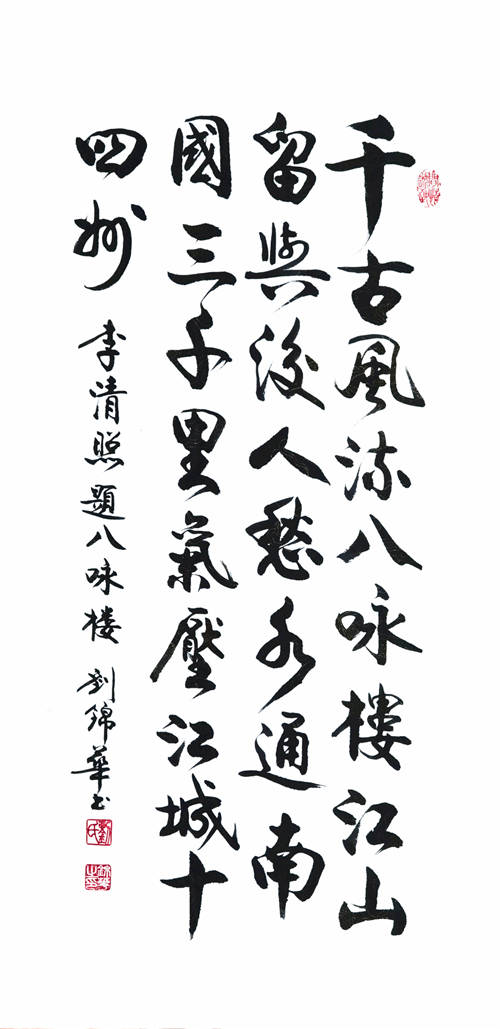 千古風流八咏樓江山
留與後人愁水通南
國三千里氣壓江城十
四州
李清照題八咏楼 劉錦華书